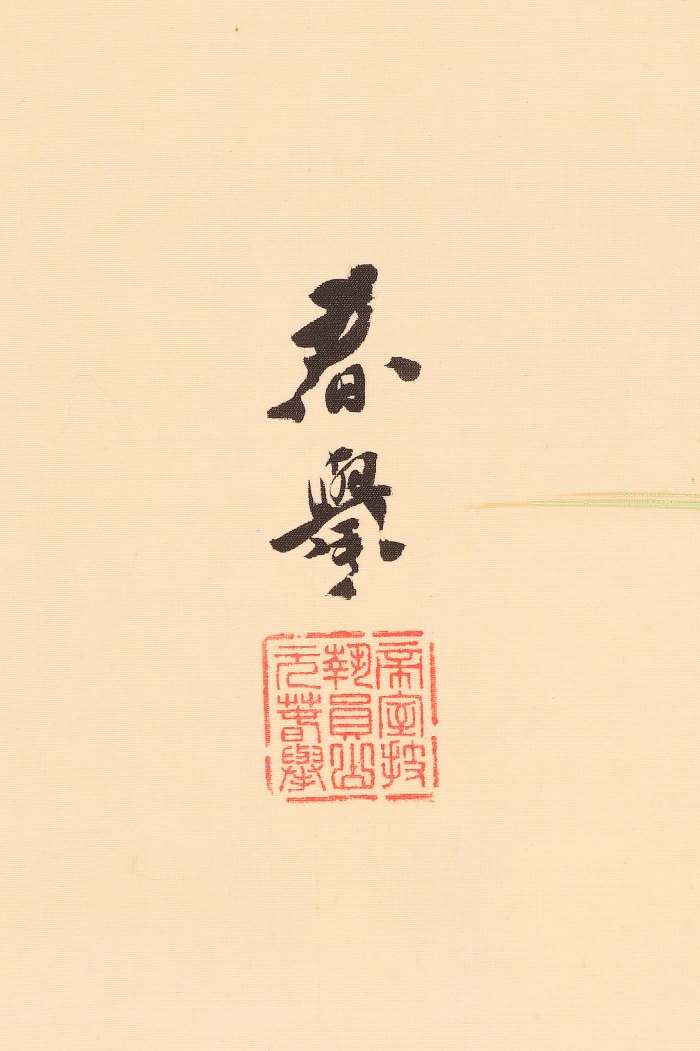 春擧
帝室技
藝員山
元春擧